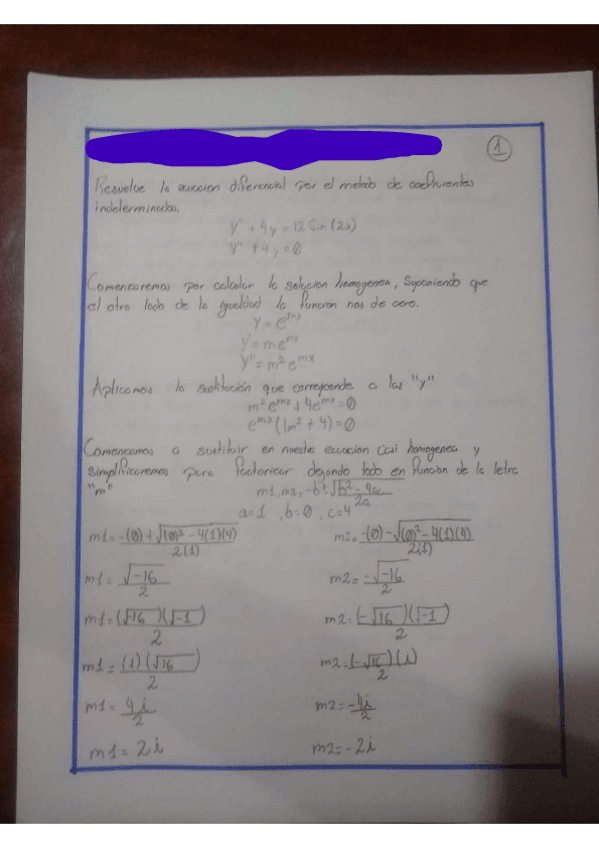 1
Resuelve la ecuacion diferencial por el metodo de coeficientes
indeterminados.
y'' + 4y = 12 Sin (2x)
y'' + 4y = 0
Comenzaremos por calcular la solucion homogenea, Suponiendo que
el otro lado de la igualdad la funcion nos de cero.
y = e^mx
y' = me^mx
y'' = m²e^mx
Aplicamos la sustitución que corresponde a las "y"
m²e^mx + 4e^mx = 0
e^mx (1m² + 4) = 0
Comenzamos a sustituir en nuestra ecuacion casi homogenea y
simplificaremos para factorizar dejando todo en funcion de la letra
"m" m1, m2 = -b ± √b² - 4ac / 2a
a = 1 , b = 0 , c = 4
m1 = -(0) + √(0)² - 4(1)(4) / 2(1) m2 = -(0) - √(0)² - 4(1)(4) / 2(1)
m1 = √-16 / 2 m2 = -√-16 / 2
m1 = (√16)(√-1) / 2 m2 = (-√16)(√-1) / 2
m1 = (i)(√16) / 2 m2 = (-√16)(i) / 2
m1 = 4i / 2 m2 = -4i / 2
m1 = 2i m2 = -2i